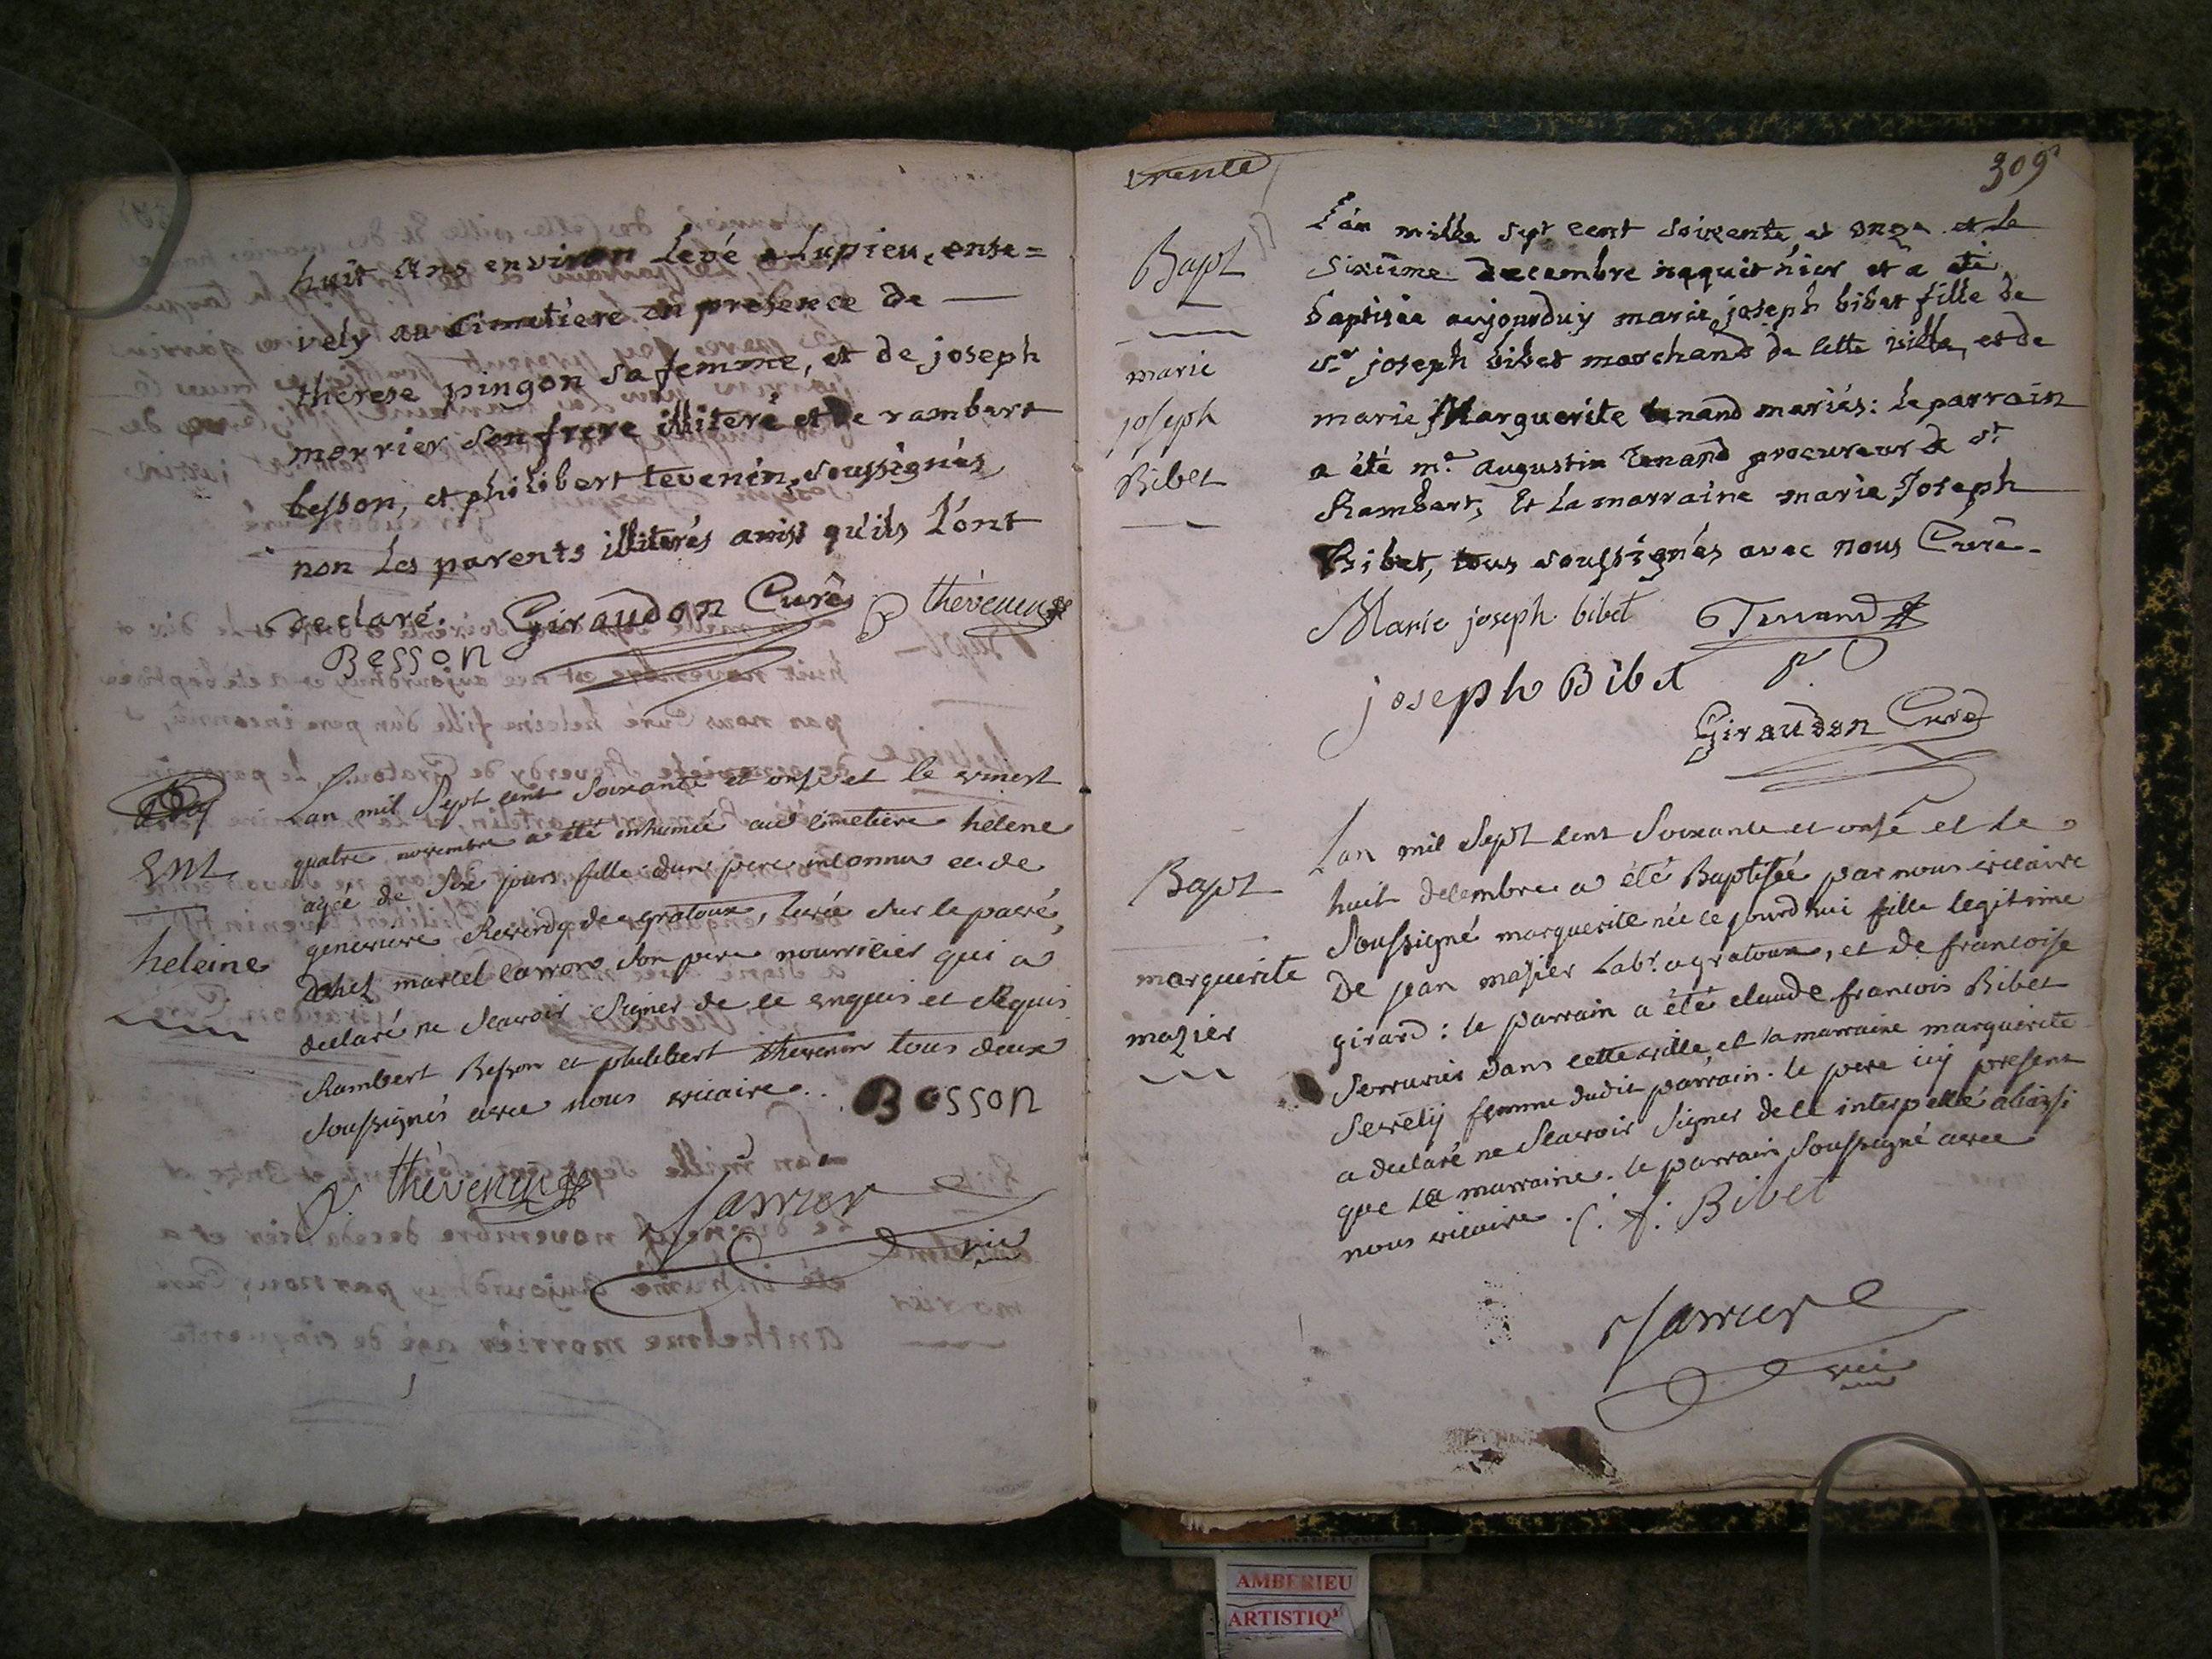 huit ans environ levé a Lupieu, ense=
vely au Cimetiere en presence de
therese pingon sa femme, et de joseph
morrier son frere illiteré et de rambert
besson, et philibert tevenin, soussignés
non les parents illiterés ainsi qu'ils L'ont
declaré. Giraudon Curé thévenin
Besson
Ent
heleine
Lan mil Sept cent Soixante et onse et le vinct
quatre novembre a été inhumée au cimetiere helene
agée de Six jours fille d'un pere inconnu et de
genevieve Reverdy de gratoux, levée sur le pavé,
chez marcel carron son pere nourricier qui a
declaré ne Scavoir Signer de ce enquis et Requis
Rambert Besson et philibert thevenin tous deux
Soussignés avec nous vicaire. Besson
P. thévenin
vic
trente
309
Bapt
marie
joseph
Bibet
L'an mille sept cent soixente et onze et le
sixième decembre naquit hier et a été
baptisée aujourduy marie joseph bibet fille de
sr joseph bibet marchand de cette ville, et de
marie Marguerite tenand mariés: le parrain
a été me augustin Tenand procureur de st
Rambert, et la marraine marie Joseph
Bibet, tous soussignés avec nous Curé.
Marie joseph bibet Tenand
joseph Bibet
Giraudon Curé
Bapt
marguerite
mazier
Lan mil Sept cent Soixante et onse et le
huit decembre a été Baptisée par nous vicaire
Soussigné marguerite née ce jourd'hui fille legitime
De jean mazier Labr. a gratoux, et de francoise
girard: le parrain a été claude francois Bibet
Serrurier dans cette ville, et la marraine marguerite
femme dudit parrain. le pere icy present
a declaré ne Scavoir Signer de ce interpellé ainsi
que la marraine. le parrain Soussigné avec
nous vicaire. C. f. Bibet
vic
AMBERIEU
ARTISTIQ